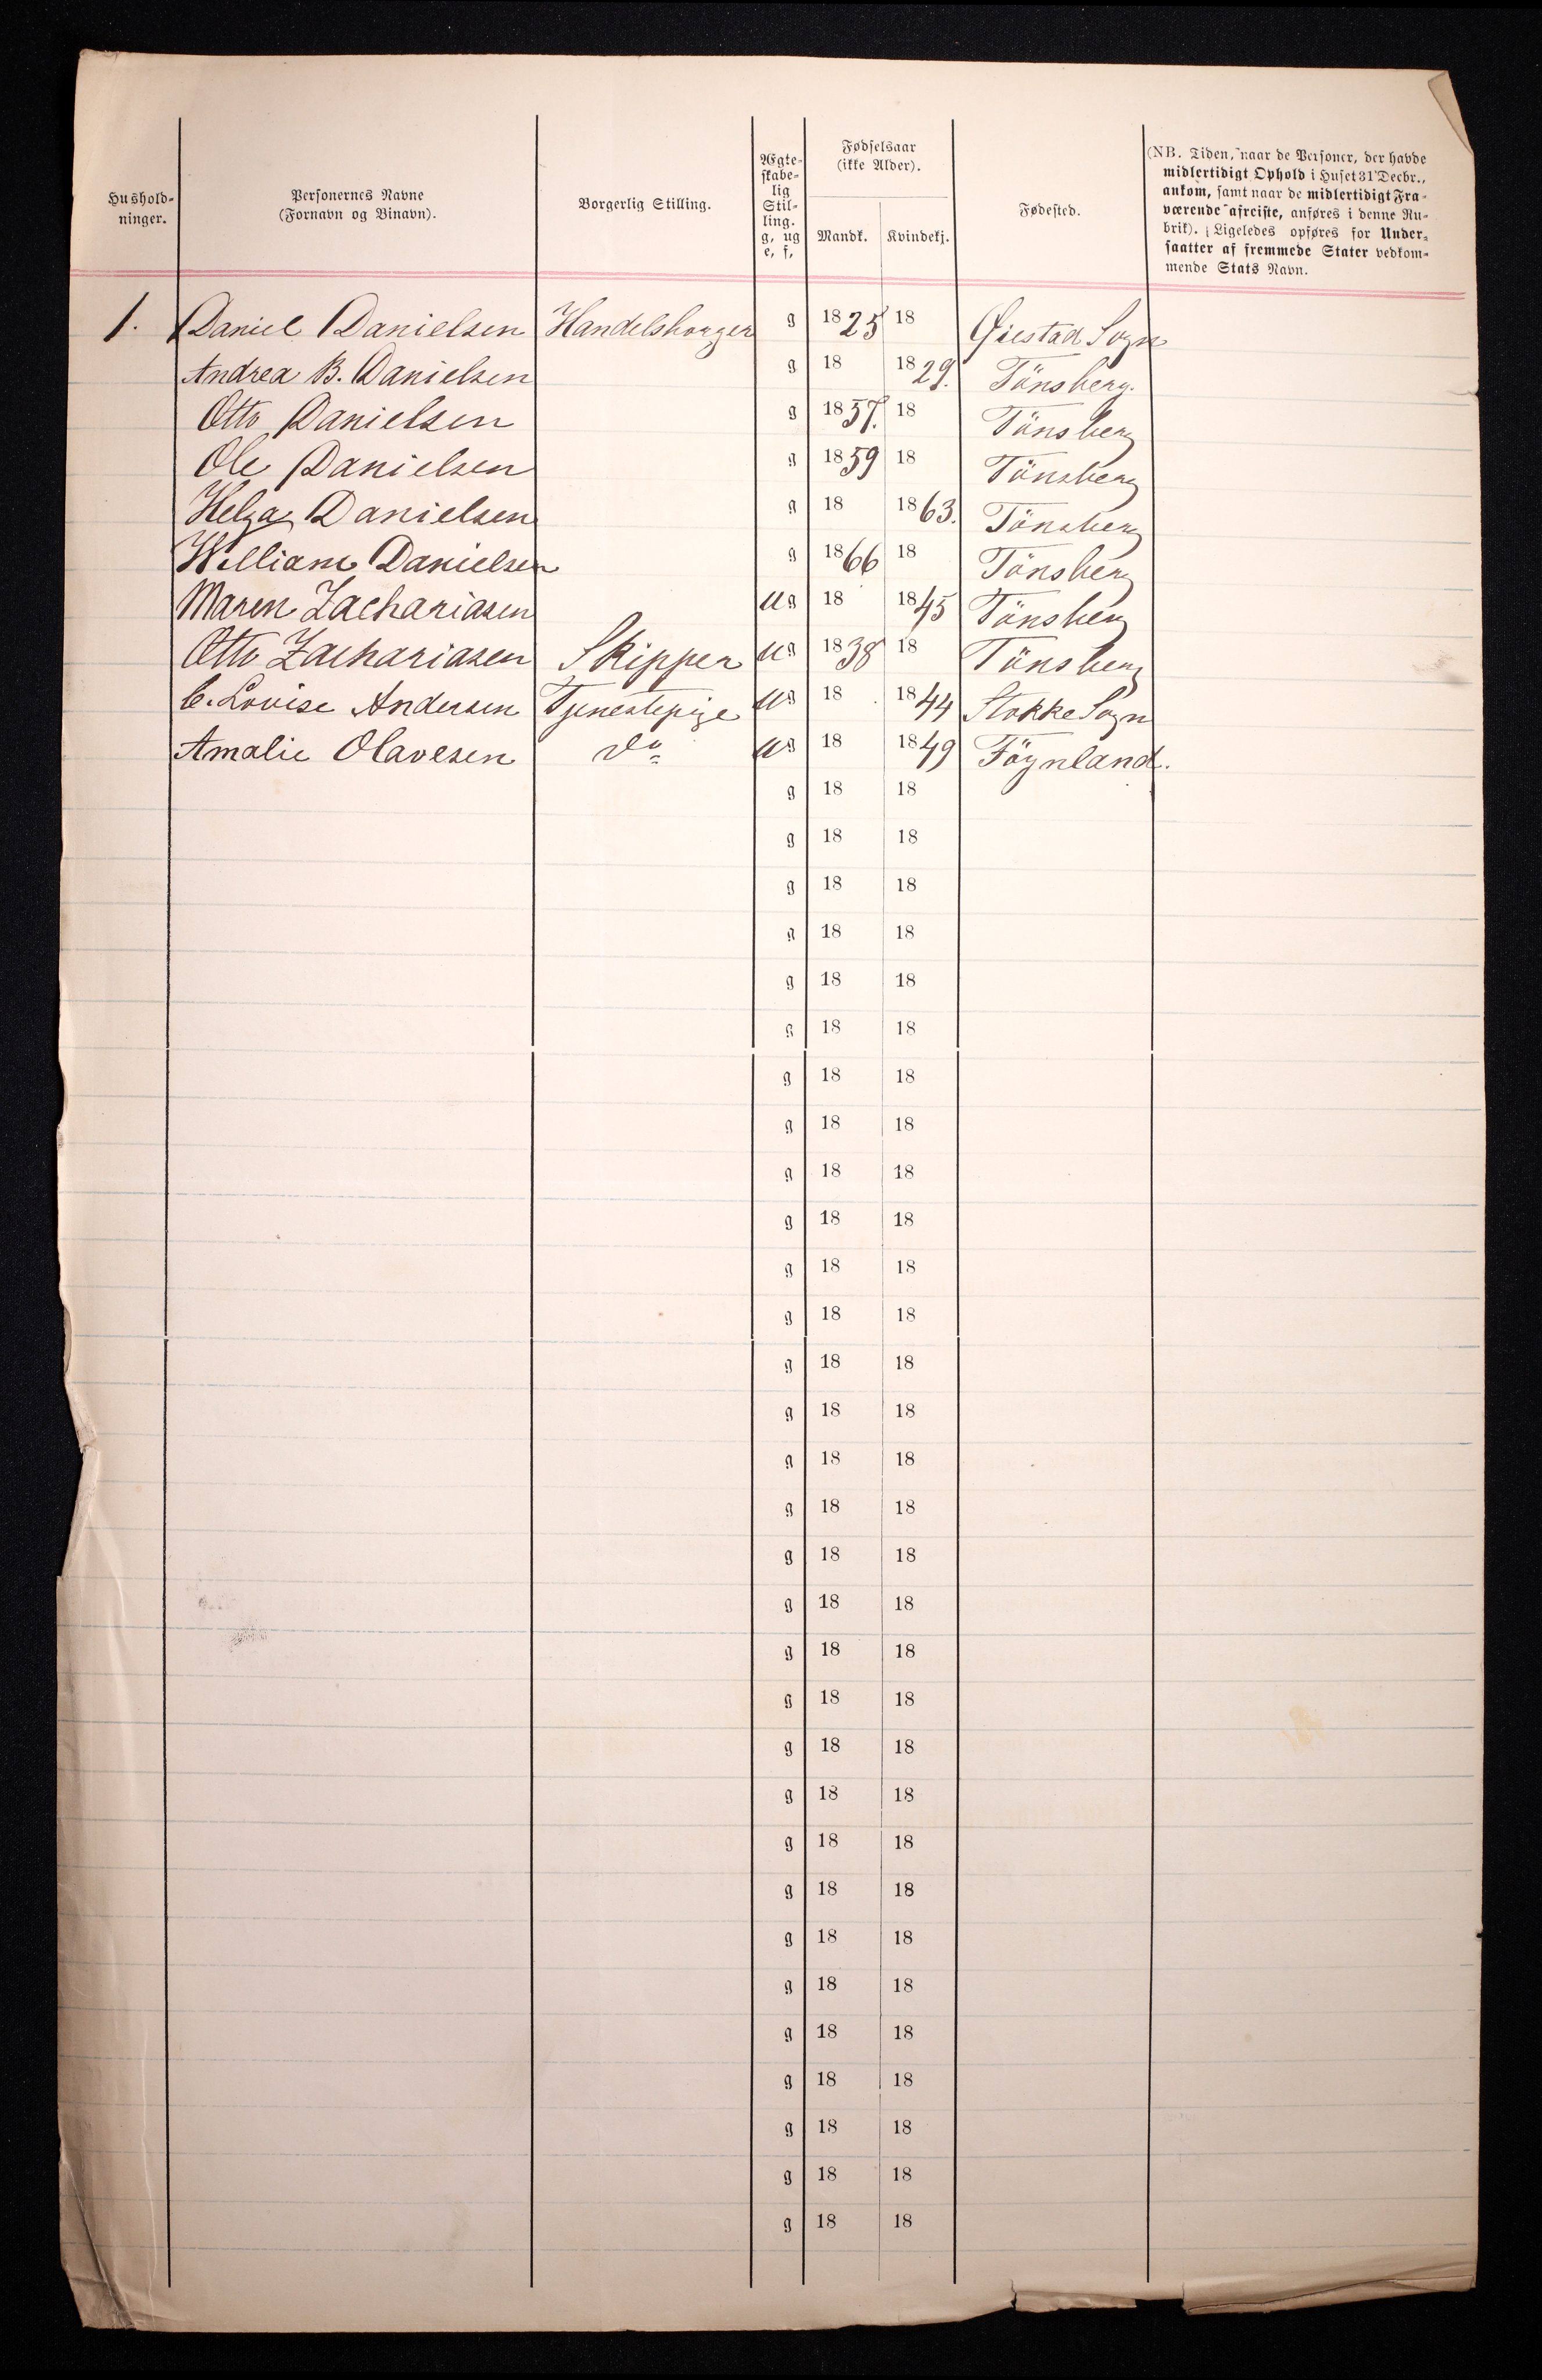 Hushold-
ninger.
Personernes Navne
(Fornavn og Binavn).
Borgerlig Stilling.
Ægte-
skabe-
lig
Stil-
ling.
g, ug
e, f,
Fødselsaar
(ikke Alder).
Mandk.
Kvindekj.
Fødested.
(NB. Tiden, naar de Personer, der havde
midlertidigt Ophold i Huset 31 Decbr.,
ankom, samt naar de midlertidigt Fra-
værende afreiste, anføres i denne Ru-
brik). Ligeledes opføres for Under-
saatter af fremmede Stater vedkom-
mende Stats Navn.
1. Daniel Danielsen Handelsborger g 1825 18 Øiestad Sogn
Andrea B. Danielsen g 18 1829. Tönsberg.
Otto Danielsen g 1857. 18 Tönsberg
Ole Danielsen g 1859 18 Tönsberg
Helga Danielsen g 18 1863. Tönsberg
William Danielsen g 1866 18 Tönsberg
Maren Zachariasen ug 18 1845 Tönsberg
Otto Zachariasen Skipper ug 1838 18 Tönsberg
C. Lovise Andersen Tjenestepige ug 18 1844 Stokke Sogn
Amalie Olavesen do ug 18 1849 Föynland.
g 18 18
g 18 18
g 18 18
g 18 18
g 18 18
g 18 18
g 18 18
g 18 18
g 18 18
g 18 18
g 18 18
g 18 18
g 18 18
g 18 18
g 18 18
g 18 18
g 18 18
g 18 18
g 18 18
g 18 18
g 18 18
g 18 18
g 18 18
g 18 18
g 18 18
g 18 18
g 18 18
g 18 18
g 18 18
g 18 18
g 18 18